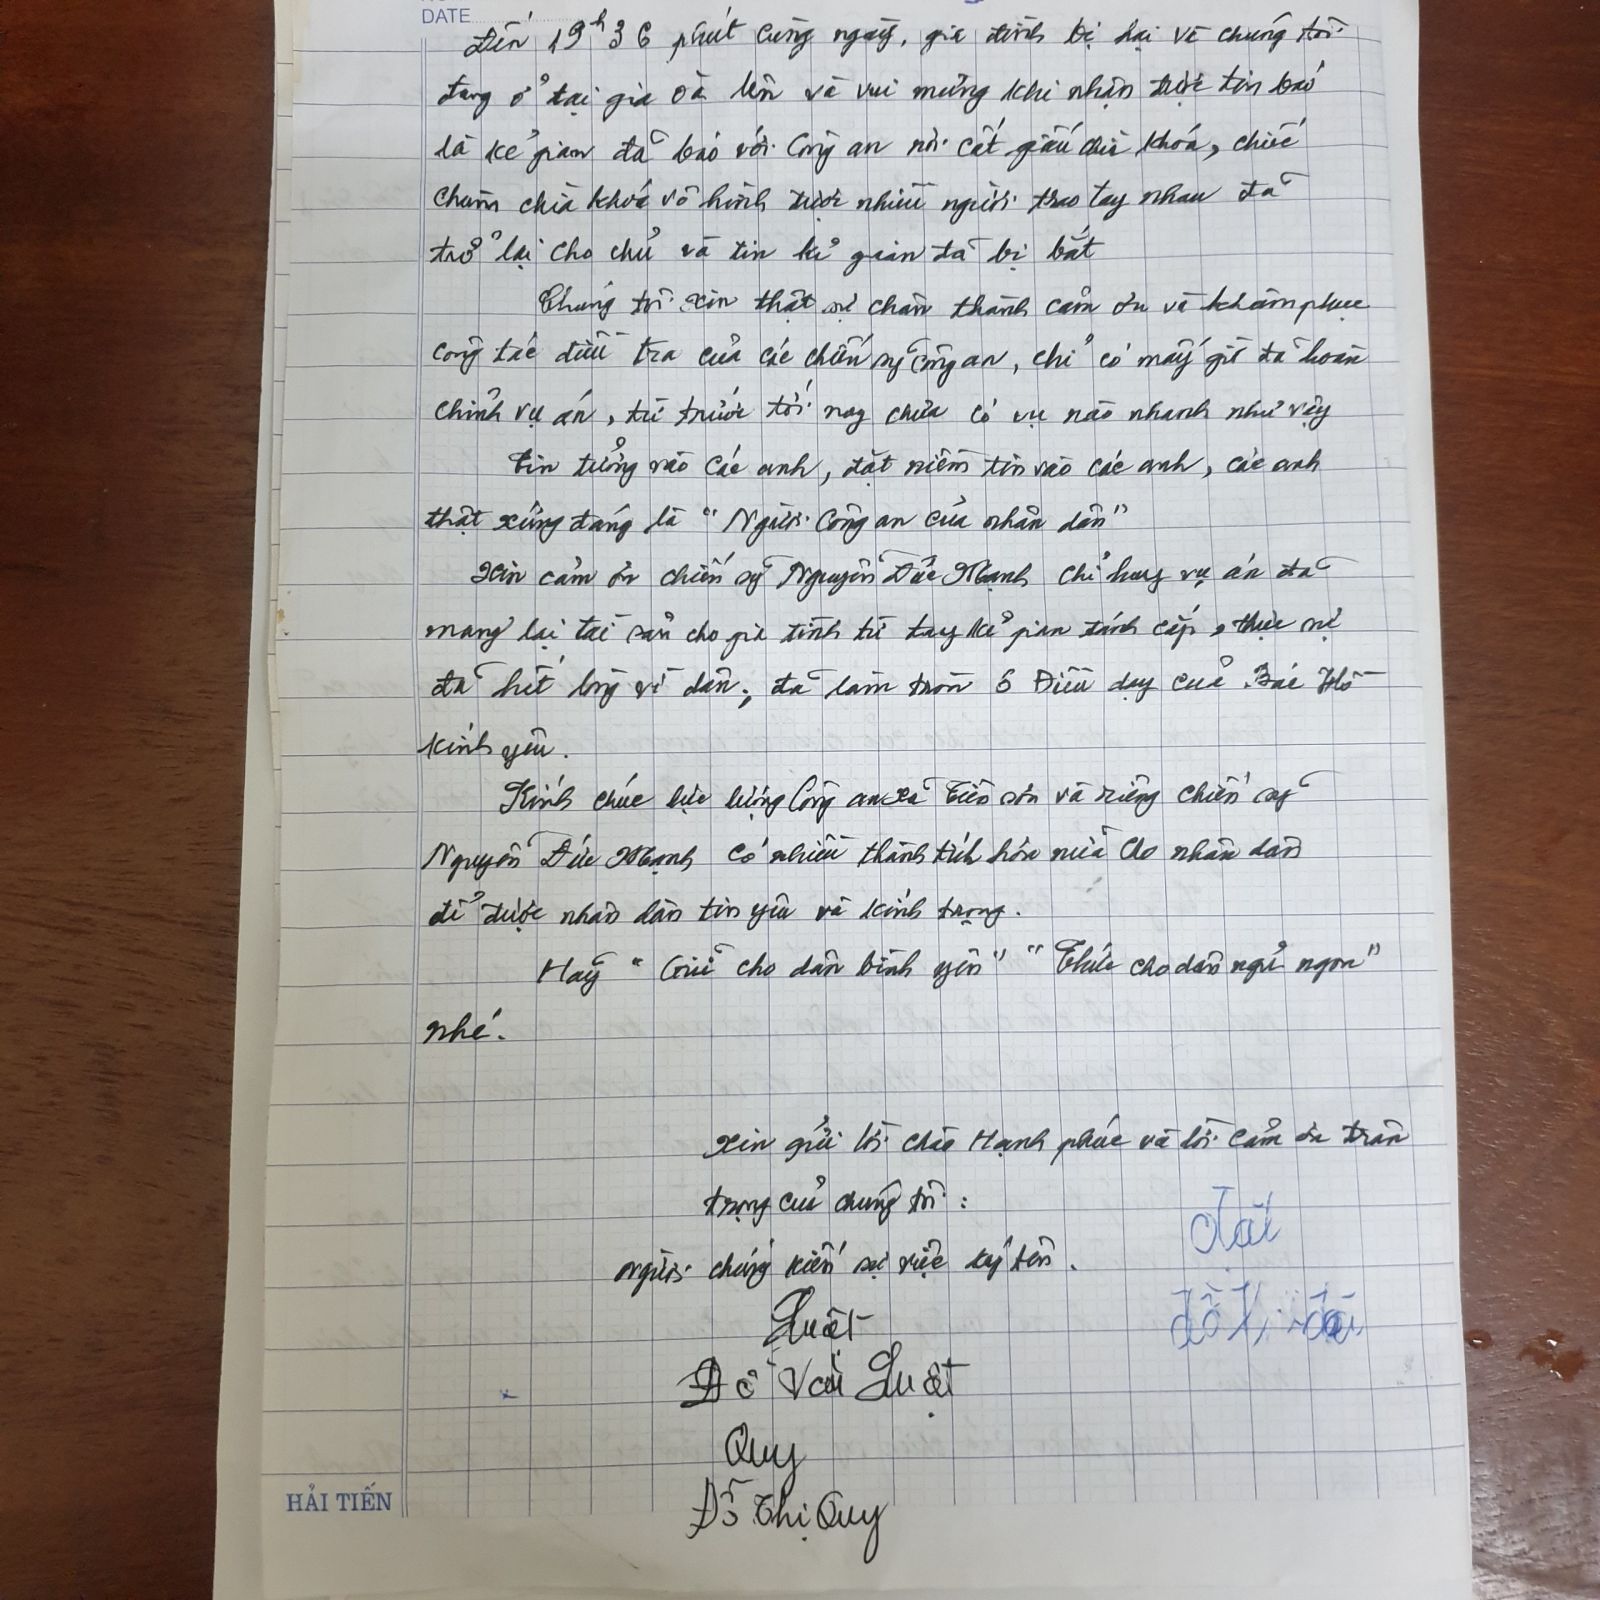 DATE
Đến 19h36 phút cùng ngày, gia đình bị hại và chúng tôi
đang ở tại gia oà lên và vui mừng khi nhận được tin báo
là kẻ gian đã báo với Công an nơi cất giấu chìa khoá, chiếc
chùm chìa khoá vô hình được nhiều người trao tay nhau đã
trở lại cho chủ và tin kẻ gian đã bị bắt
Chúng tôi xin thật sự chân thành cảm ơn và khâm phục
công tác điều tra của các chiến sỹ công an, chỉ có mấy giờ đã hoàn
chỉnh vụ án, từ trước tới nay chưa có vụ nào nhanh như vậy
Tin tưởng vào các anh, đặt niềm tin vào các anh, các anh
thật xứng đáng là "Người Công an của nhân dân"
Xin cảm ơn chiến sỹ Nguyễn Đức Mạnh chỉ huy vụ án đã
mang lại tài sản cho gia đình từ tay kẻ gian đánh cắp, thực sự
đã hết lòng vì dân, đã làm tròn 6 Điều dạy của Bác Hồ
kính yêu.
Kính chúc lực lượng Công an xã Tiên Sơn và riêng chiến sỹ
Nguyễn Đức Mạnh có nhiều thành tích hơn nữa cho nhân dân
để được nhân dân tin yêu và kính trọng.
Hãy "Giữ cho dân bình yên" "Thức cho dân ngủ ngon"
nhé.
Xin gửi lời chào Hạnh phúc và lời cảm ơn trân
trọng của chúng tôi:
người chứng kiến sự việc ký tên.
Đại
Luật
Đỗ
Đỗ Văn Luật
Quy
Đỗ Thị Quy
HẢI TIẾN